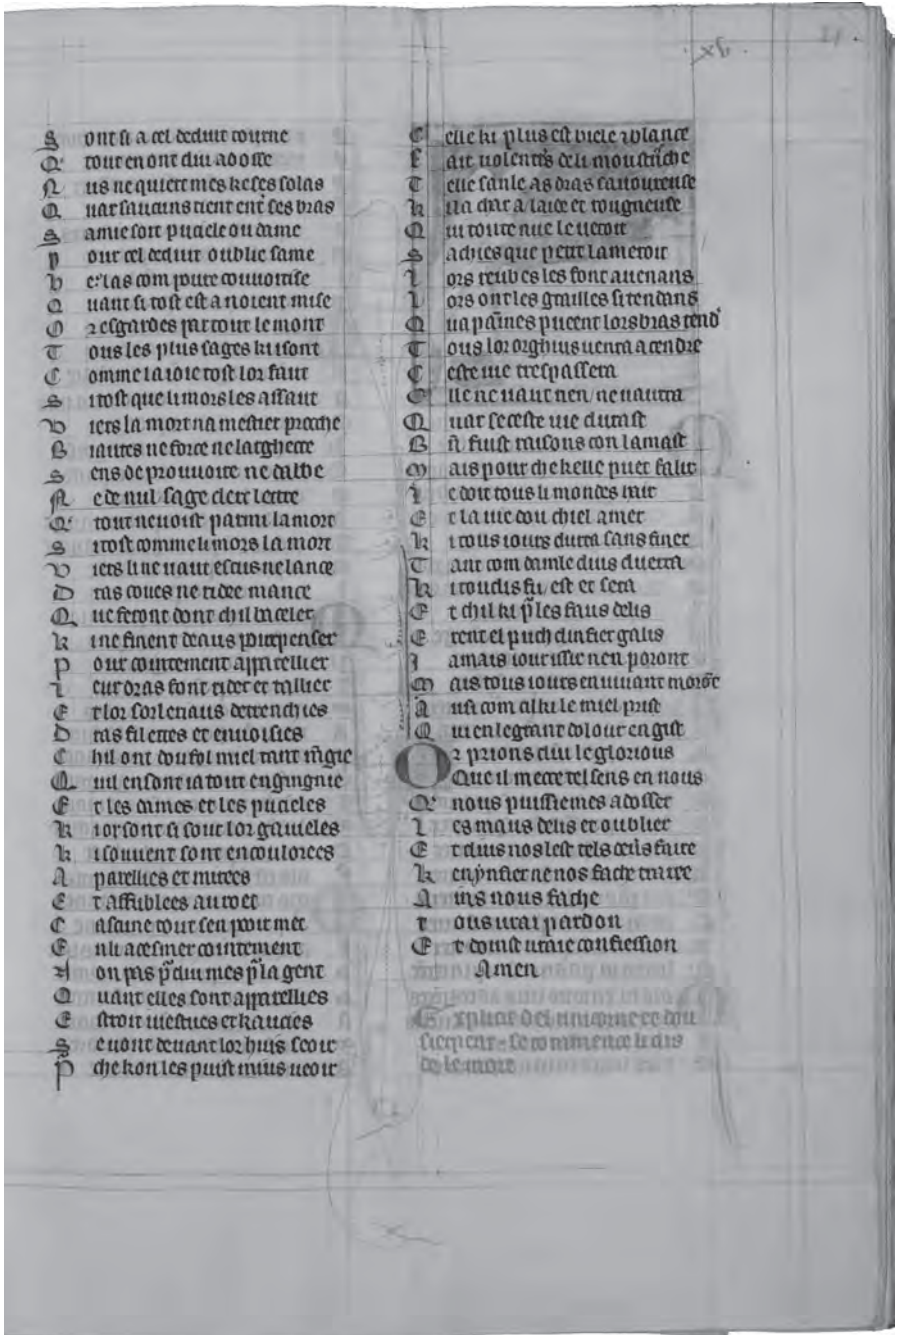 xv.
S ont si a cel deduit tourne
Q' tout en ont diu adosse
N us ne quiert mes ke ses solas
Q uar saucuns tient entˀ ses bras
S amie soit pucele ou dame
P our cel deduit oublie same
H e las com poure couuoitise
Q uant si tost est a noient mise
O r esgardes par tout le mont
T ous les plus sages ki i sont
C omme la ioie tost lor faut
S i tost que li mors les assaut
V iers la mort na mestier proeche
B iautes ne force ne larghece
S ens de prouuoire ne dabbe
N e de nul sage clerc lettre
Q' tout ne uoist parmi la mort
S i tost comme li mors la mort
V iers li ne uaut escus ne lance
D ras coues ne ridee mance
Q ue feront dont chil baceler
K i ne finent deaus pourpenser
P our cointement apparellier
L eur dras font rider et tallier
E t lor sorlenaus detrenchies
D ras filetes et enuoisies
C hil ont dou fol miel tant mˀgie
Q uil en sont ia tout engingnie
E t les dames et les puceles
K i or sont si sour lor gaueles
K i souuent sont encoulorees
A parellies et mirees
E t affublees au toet
C ascune tout sen pooir met
E n li acesmer cointement
N on pas pˀ diu mes pˀ la gent
Q uant elles sont apparellies
E stroit uiestues et kaucies
S e uont deuant lor huis seoir
P che kon les puist mius ueoir
C elle ki plus est biele & blance
F ait uolentˀs de li moustrˀche
T elle sanle as dras sauoureuse
K i la char a laide et rougneuse
Q ui toute nue le ueroit
S achies que petit lameroit
L ors reubes les font auenans
L ors ont les grailles si tendans
Q ua paˀines pueent lors bras tendˀ
T ous lor orghius uenra a cendre
C este uie trespassera
E lle ne uaut nen ne uaurra
Q uar se ceste uie durast
B n fuist raisons con lamast
M ais pour che kelle puet falir
L e doit tous li mondes hair
E t la uie dou chiel amer
K i tous iours durra sans finer
T ant com damle dius duerra
K i toudis fu est et sera
E t chil ki pˀ les faus delis
E rent el puch dinfier galis
J amais iour issir nen poront
M ais tous iours en uiuant morōt
A usi com alki le miel prist
Q ui en le grant dolour en gist
O r prions diu le glorious
Que il mece tel sens en nous
Q' nous puissiemes adosser
L es maus delis et oublier
E t dius nos lest tels oeuˀs faire
K en ynfier ne nos face traire
A ins nous fache
T ous urai pardon
E t doinst uraie confiession
Amen
Explicit del unicorne et dou
sierpent. se commence li dis
de le mort